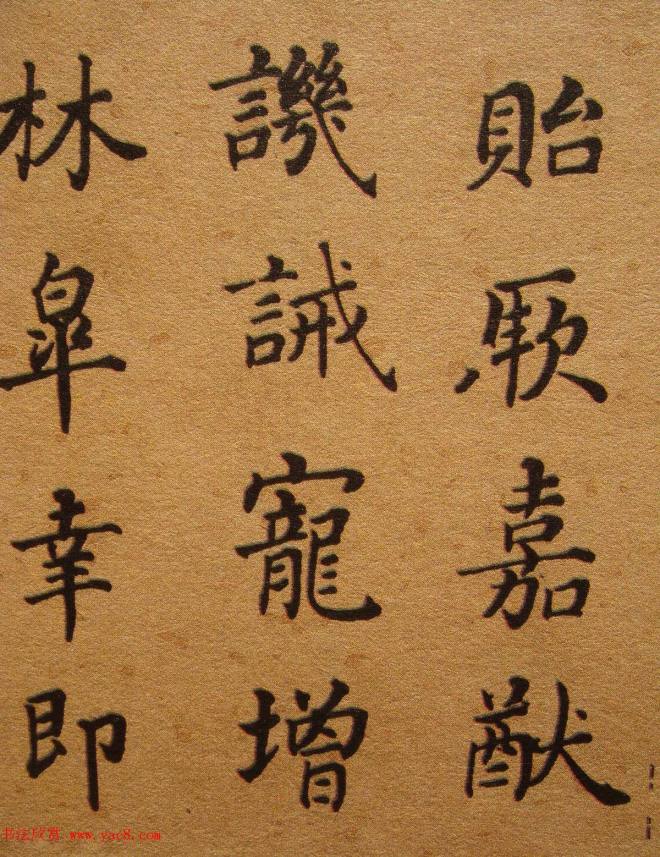 貽厥嘉猷
譏誡寵增
林皋幸即
书法欣赏 www.yac8.com